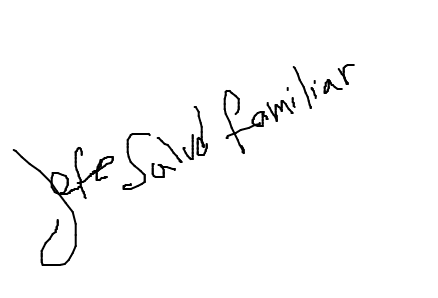 Jefe Salud familiar